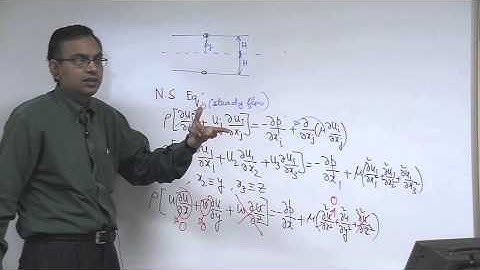 H
y
H
N.S Eqⁿ (steady flow)
ρ[∂uᵢ/∂t + uⱼ ∂uᵢ/∂xⱼ] = -∂p/∂xᵢ + ∂/∂xⱼ(μ ∂uᵢ/∂xⱼ)
∂u₁/∂x₁ + u₂ ∂u₁/∂x₂ + u₃ ∂u₁/∂x₃] = -∂p/∂x₁ + μ(∂²u₁/∂x₁² + ∂²u₁/∂x₂² + ∂²u₁/∂x₃²)
x₂ = y, x₃ = z
0
ρ[u ∂u/∂x + v ∂u/∂y + w ∂u/∂z] = -∂p/∂x + μ(∂²u/∂x² + ∂²u/∂y² + ∂²u/∂z²)
0 0